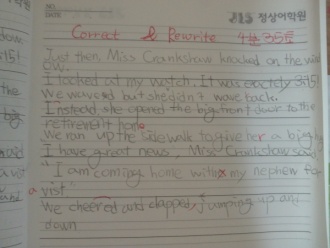 NO.
DATE
정상어학원
Correct & Rewrite 4분 35초
Just then, Miss Crankshaw knocked on the wind
ow.
I looked at my watch. It was exactely 3:15!
We waved but she didn't wave back.
Instead she opened the big front door to the
retirement home
We ran up the sidewalk to give her a big hug
I have great news, Miss Crankshaw said
I am coming home with my nephew for
a visit"
We cheered and clapped, jumping up and
down